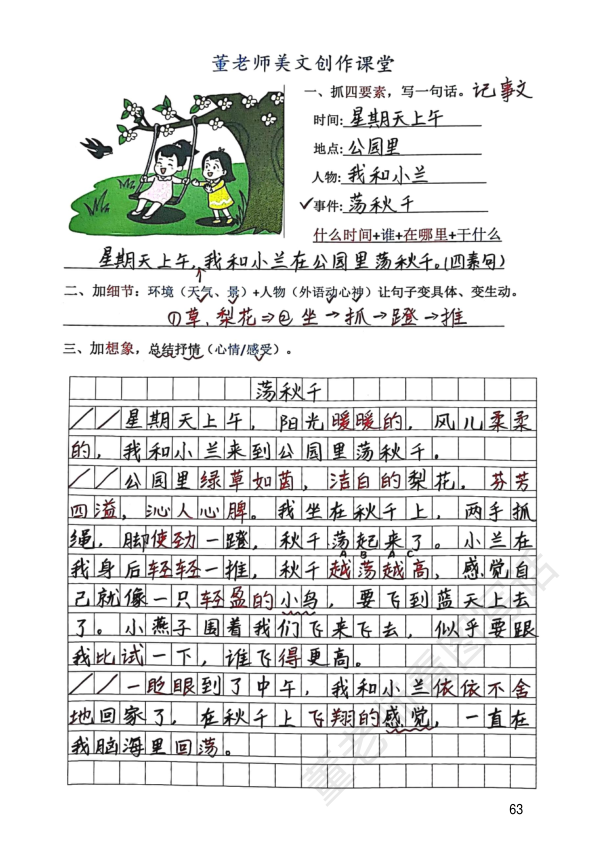 董老师美文创作课堂
一、抓四要素，写一句话。记事文
时间:星期天上午
地点:公园里
人物:我和小兰
✓事件:荡秋千
什么时间+谁+在哪里+干什么
星期天上午,我和小兰在公园里荡秋千。(四素句)
二、加细节：环境（天气、景）+人物（外语动心神）让句子变具体、变生动。
①草、梨花⇒②坐→抓→蹬→推
三、加想象，总结抒情（心情/感受）。
荡秋千
//星期天上午，阳光暖暖的，风儿柔柔
的，我和小兰来到公园里荡秋千。
//公园里绿草如茵，洁白的梨花，芬芳
四溢，沁人心脾。我坐在秋千上，两手抓
绳，脚使劲一蹬，秋千荡起来了。小兰在
A B A C
我身后轻轻一推，秋千越荡越高，感觉自
己就像一只轻盈的小鸟，要飞到蓝天上去
了。小燕子围着我们飞来飞去，似乎要跟
我比试一下，谁飞得更高。
//一眨眼到了中午，我和小兰依依不舍
地回家了，在秋千上飞翔的感觉，一直在
我脑海里回荡。
63